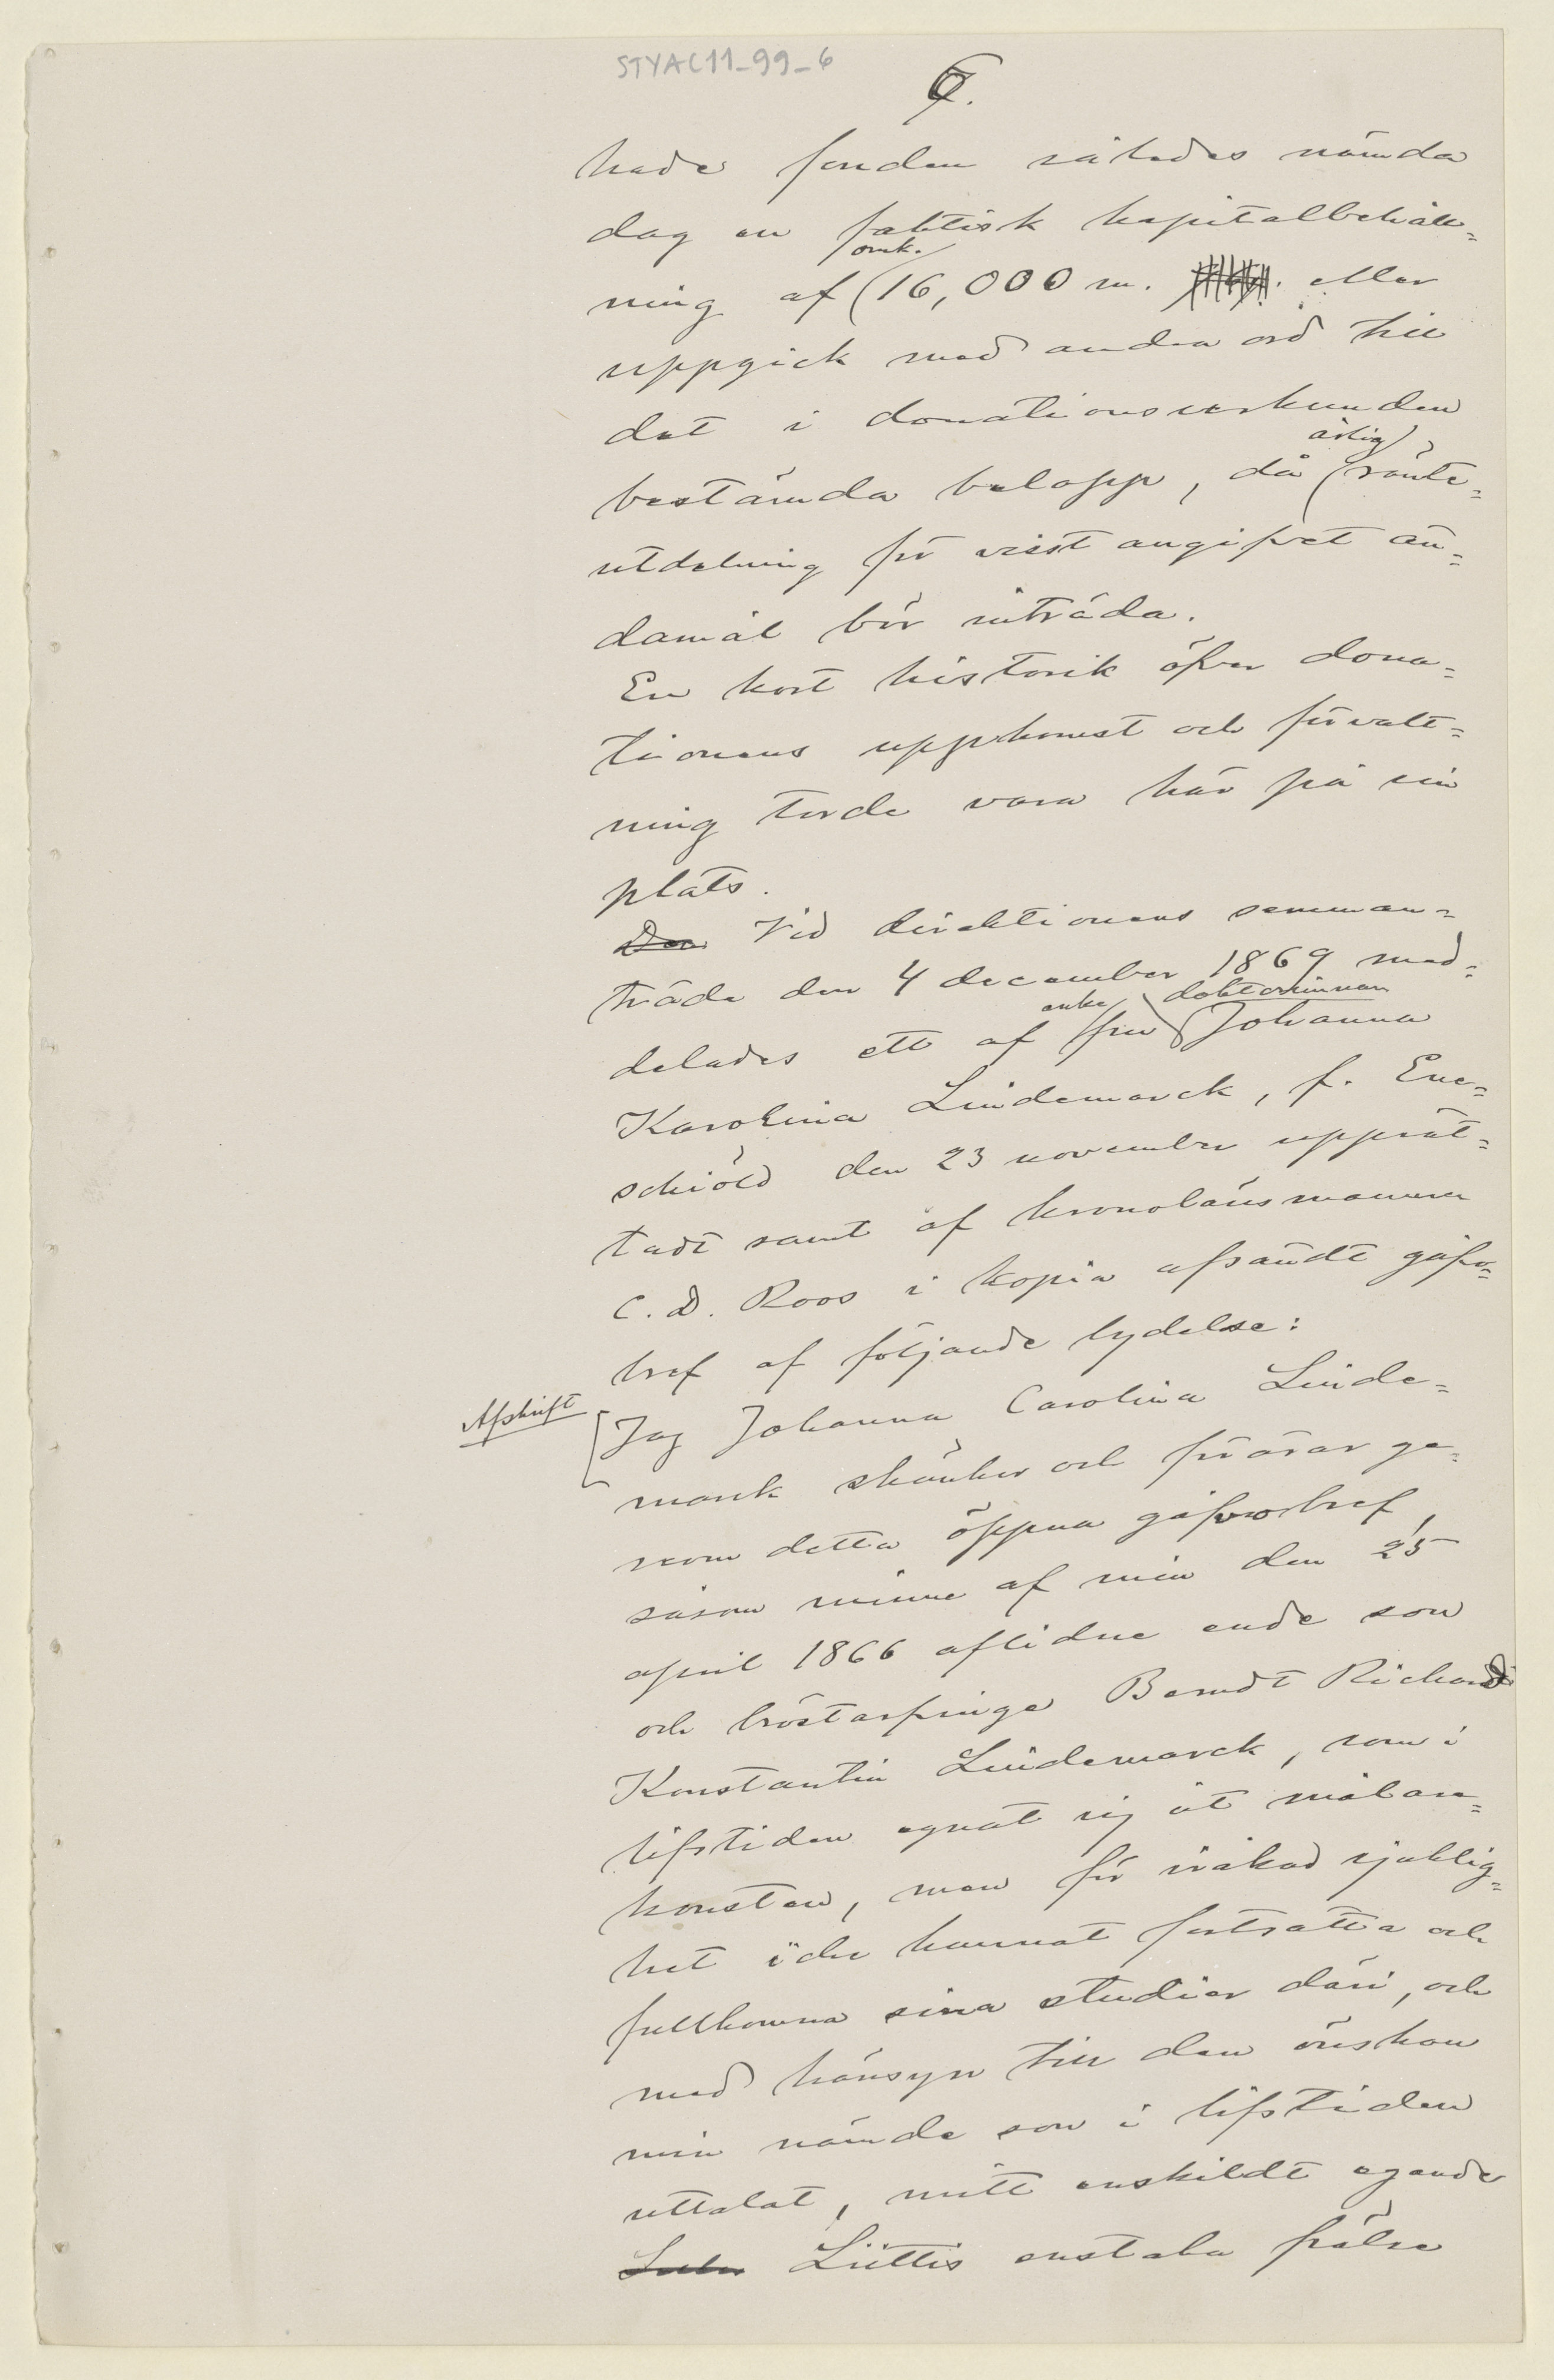 STYAC11_99_6
6.
hade fonden således nämda
dag en faktisk kapitalbehåll=
omk.
ning af 16,000 m. eller
uppgick med andra ord till
det i donationsurkunden
årlig
bestämda belopp, då ränte=
utdelning för visst angifvet än=
damål bör inträda.
En kort historik öfver dona=
tionens uppkomst och förvalt=
ning torde vara här på sin
plats.
Den Vid direktionens samman=
träde den 4 december 1869 med=
enke doktorinnan
delades ett af fru Johanna
Karolina Lindemarck, f. Ene=
schiöld den 23 november upprät=
tadt samt af kronolänsmannen
C. D. Roos i kopia afsändt gåfvo=
bref af följande lydelse:
Afskrift
Jag Johanna Carolina Linde=
marck skänker och förärar ge=
nom detta öppna gåfvobref,
såsom minne af min den 25
april 1866 aflidne ende son
och bröstarfvinge Berndt Richard
Konstantin Lindemarck, som i
lifstiden egnat sig åt målare=
konsten, men för iråkad sjuklig=
het icke hunnat fortsätta och
fullkomna sina studier däri, och
med hänsyn till den önskan
min nämde son i lifstiden
uttalat, mitt enskildt egande
Lüttis enstaka frälse